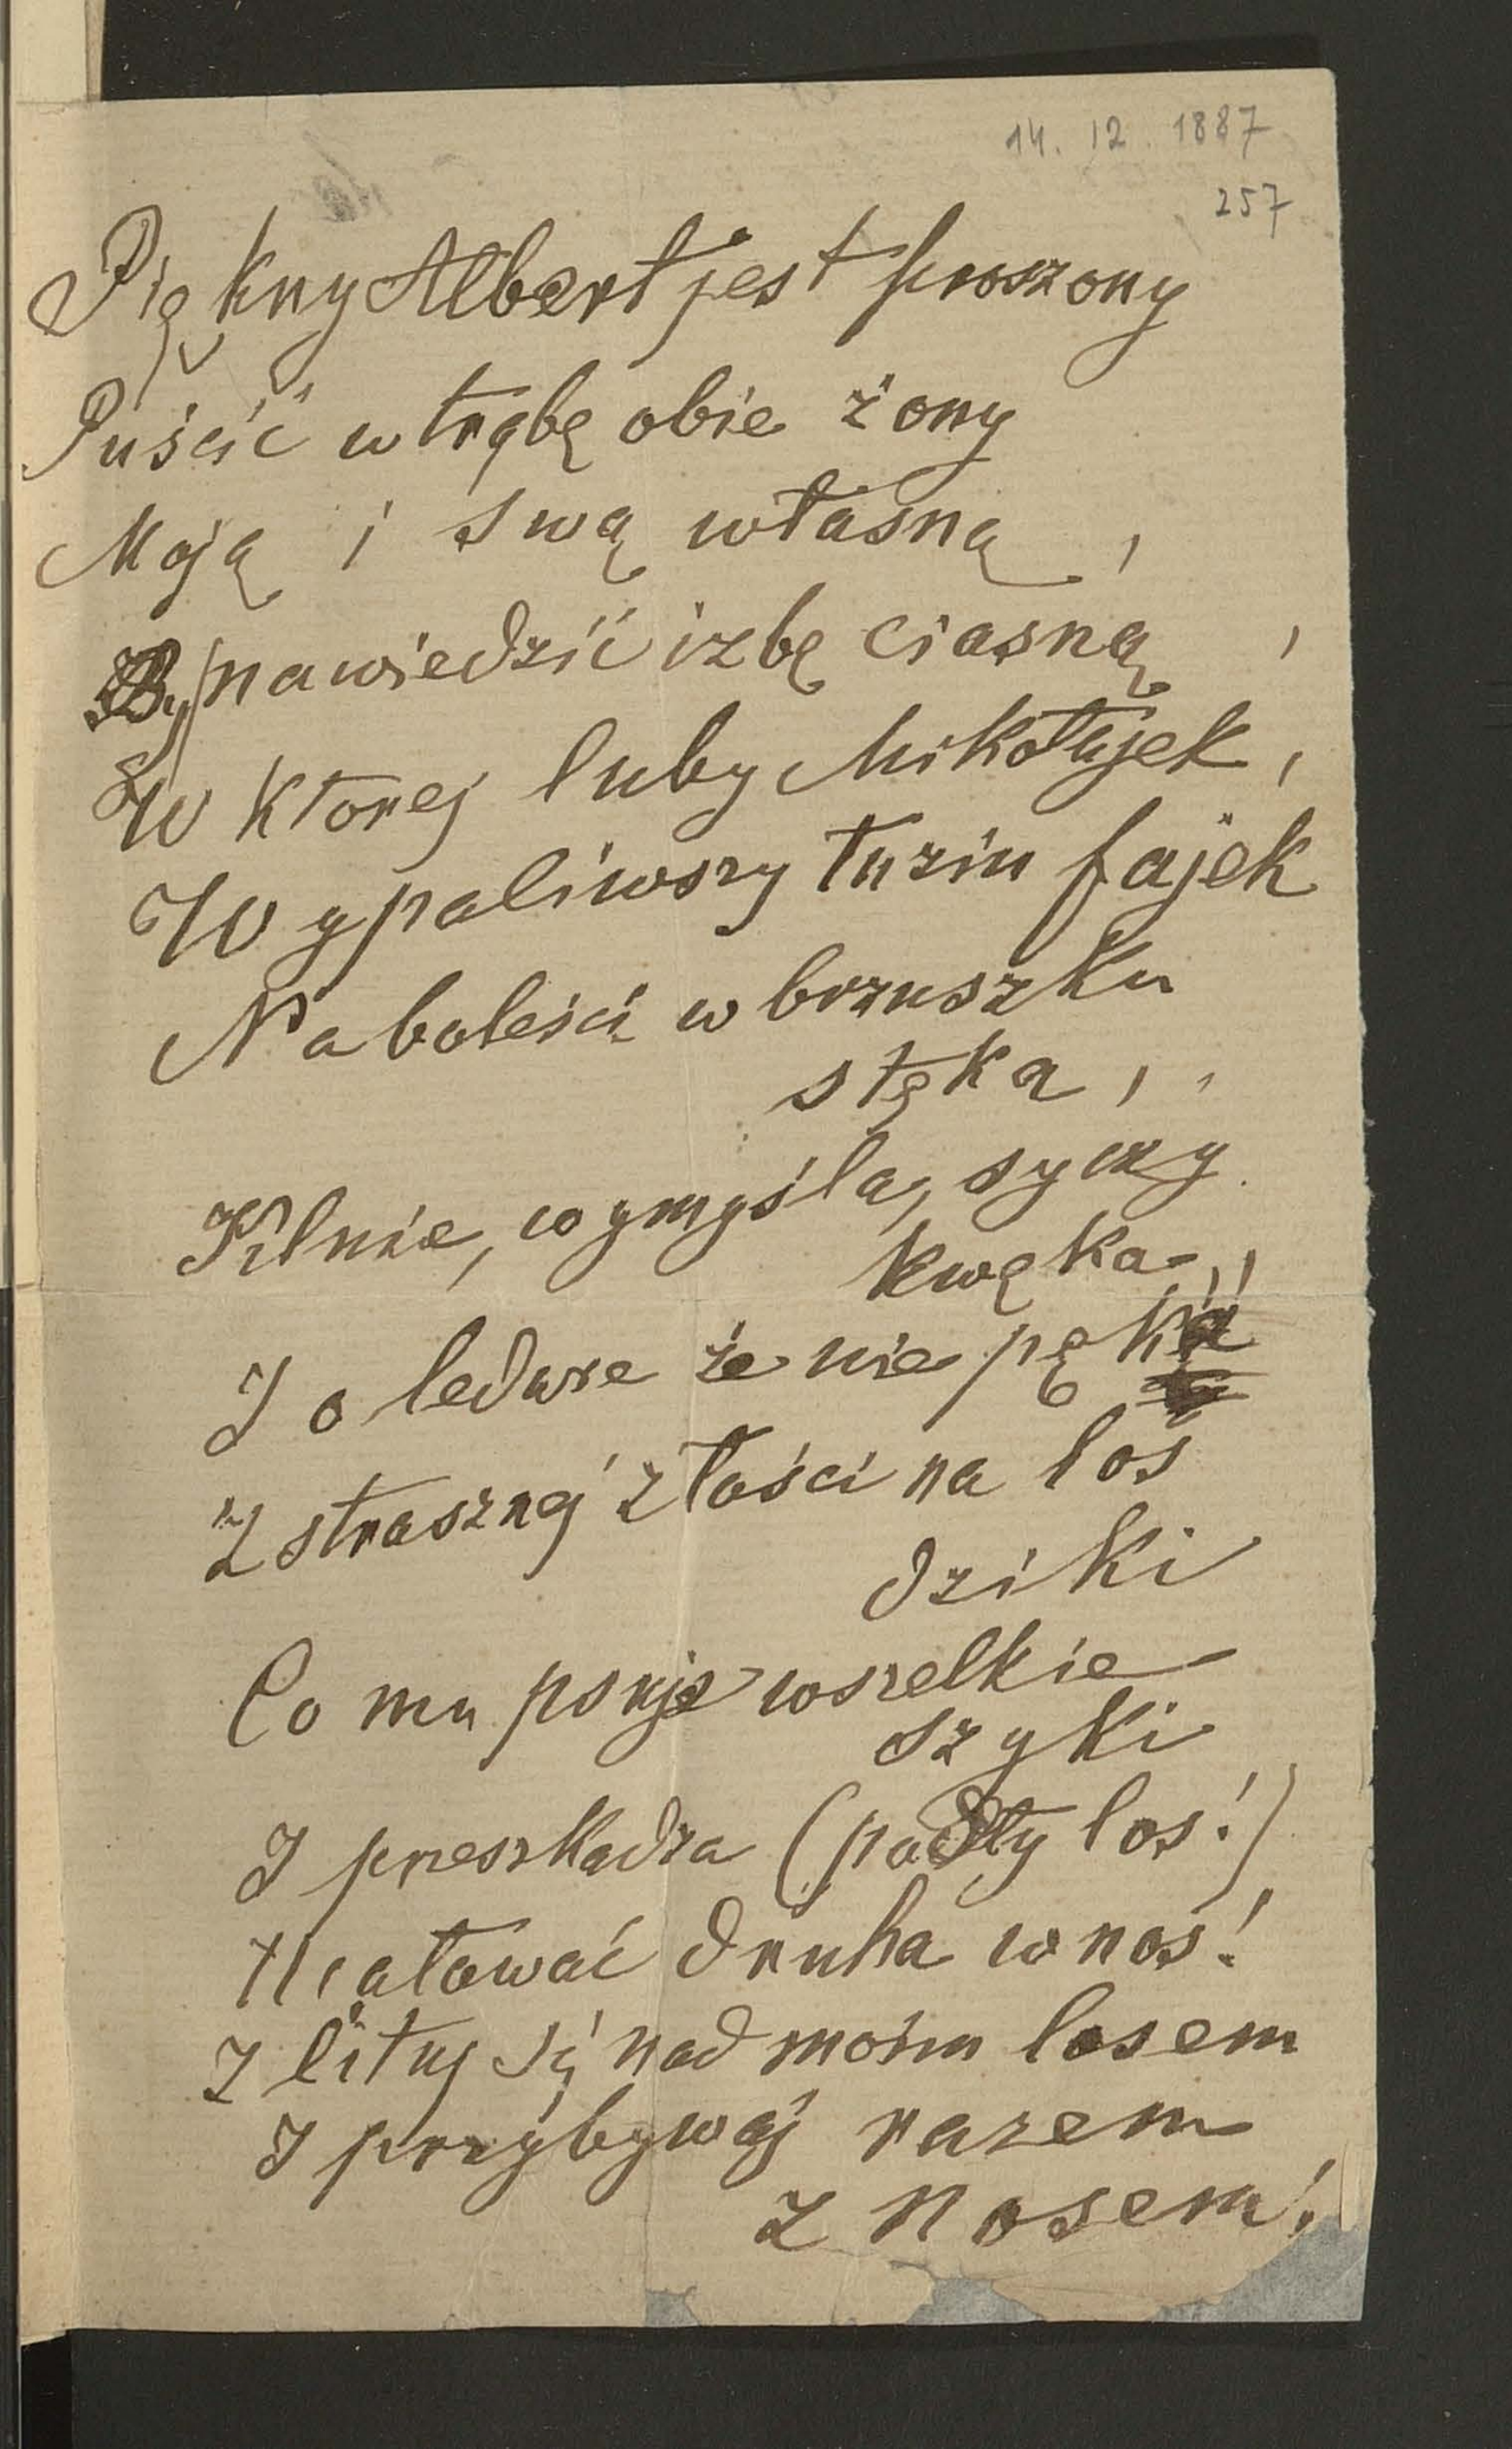 14. 12. 1887
257
Piękny Albert jest proszony
Puścić w trąbę obie żony
Moją i swą własną,
nawiedzić izbę ciasną,
W ktorej luby Mikołajek,
Wypaliwszy tuzin fajek
Na boleści w brzuszku
stęka,
Kilnie, wymyśla, syczy
kwęka,
I o ledwie że nie pęka
Z strasznej złości na los
dziki
Co mu psuje wszelkie
szyki
I przeszkadza (podły los!)
druha w nos!
Zlituj się nad moim losem
I przybywaj razem
z nosem!